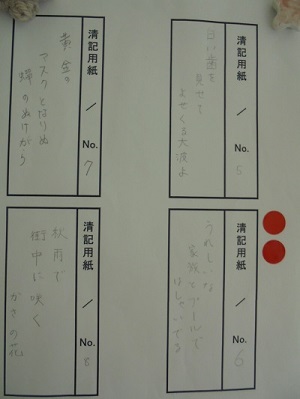 清記用紙 / No. 5
白い歯を
見せて
よせくる大波よ
清記用紙 / No. 6
うれしいな
家族とプールで
はしゃいでる
清記用紙 / No. 7
黄金の
マスクとなりぬ
蝉のぬけがら
清記用紙 / No. 8
秋雨で
街中に咲く
かさの花